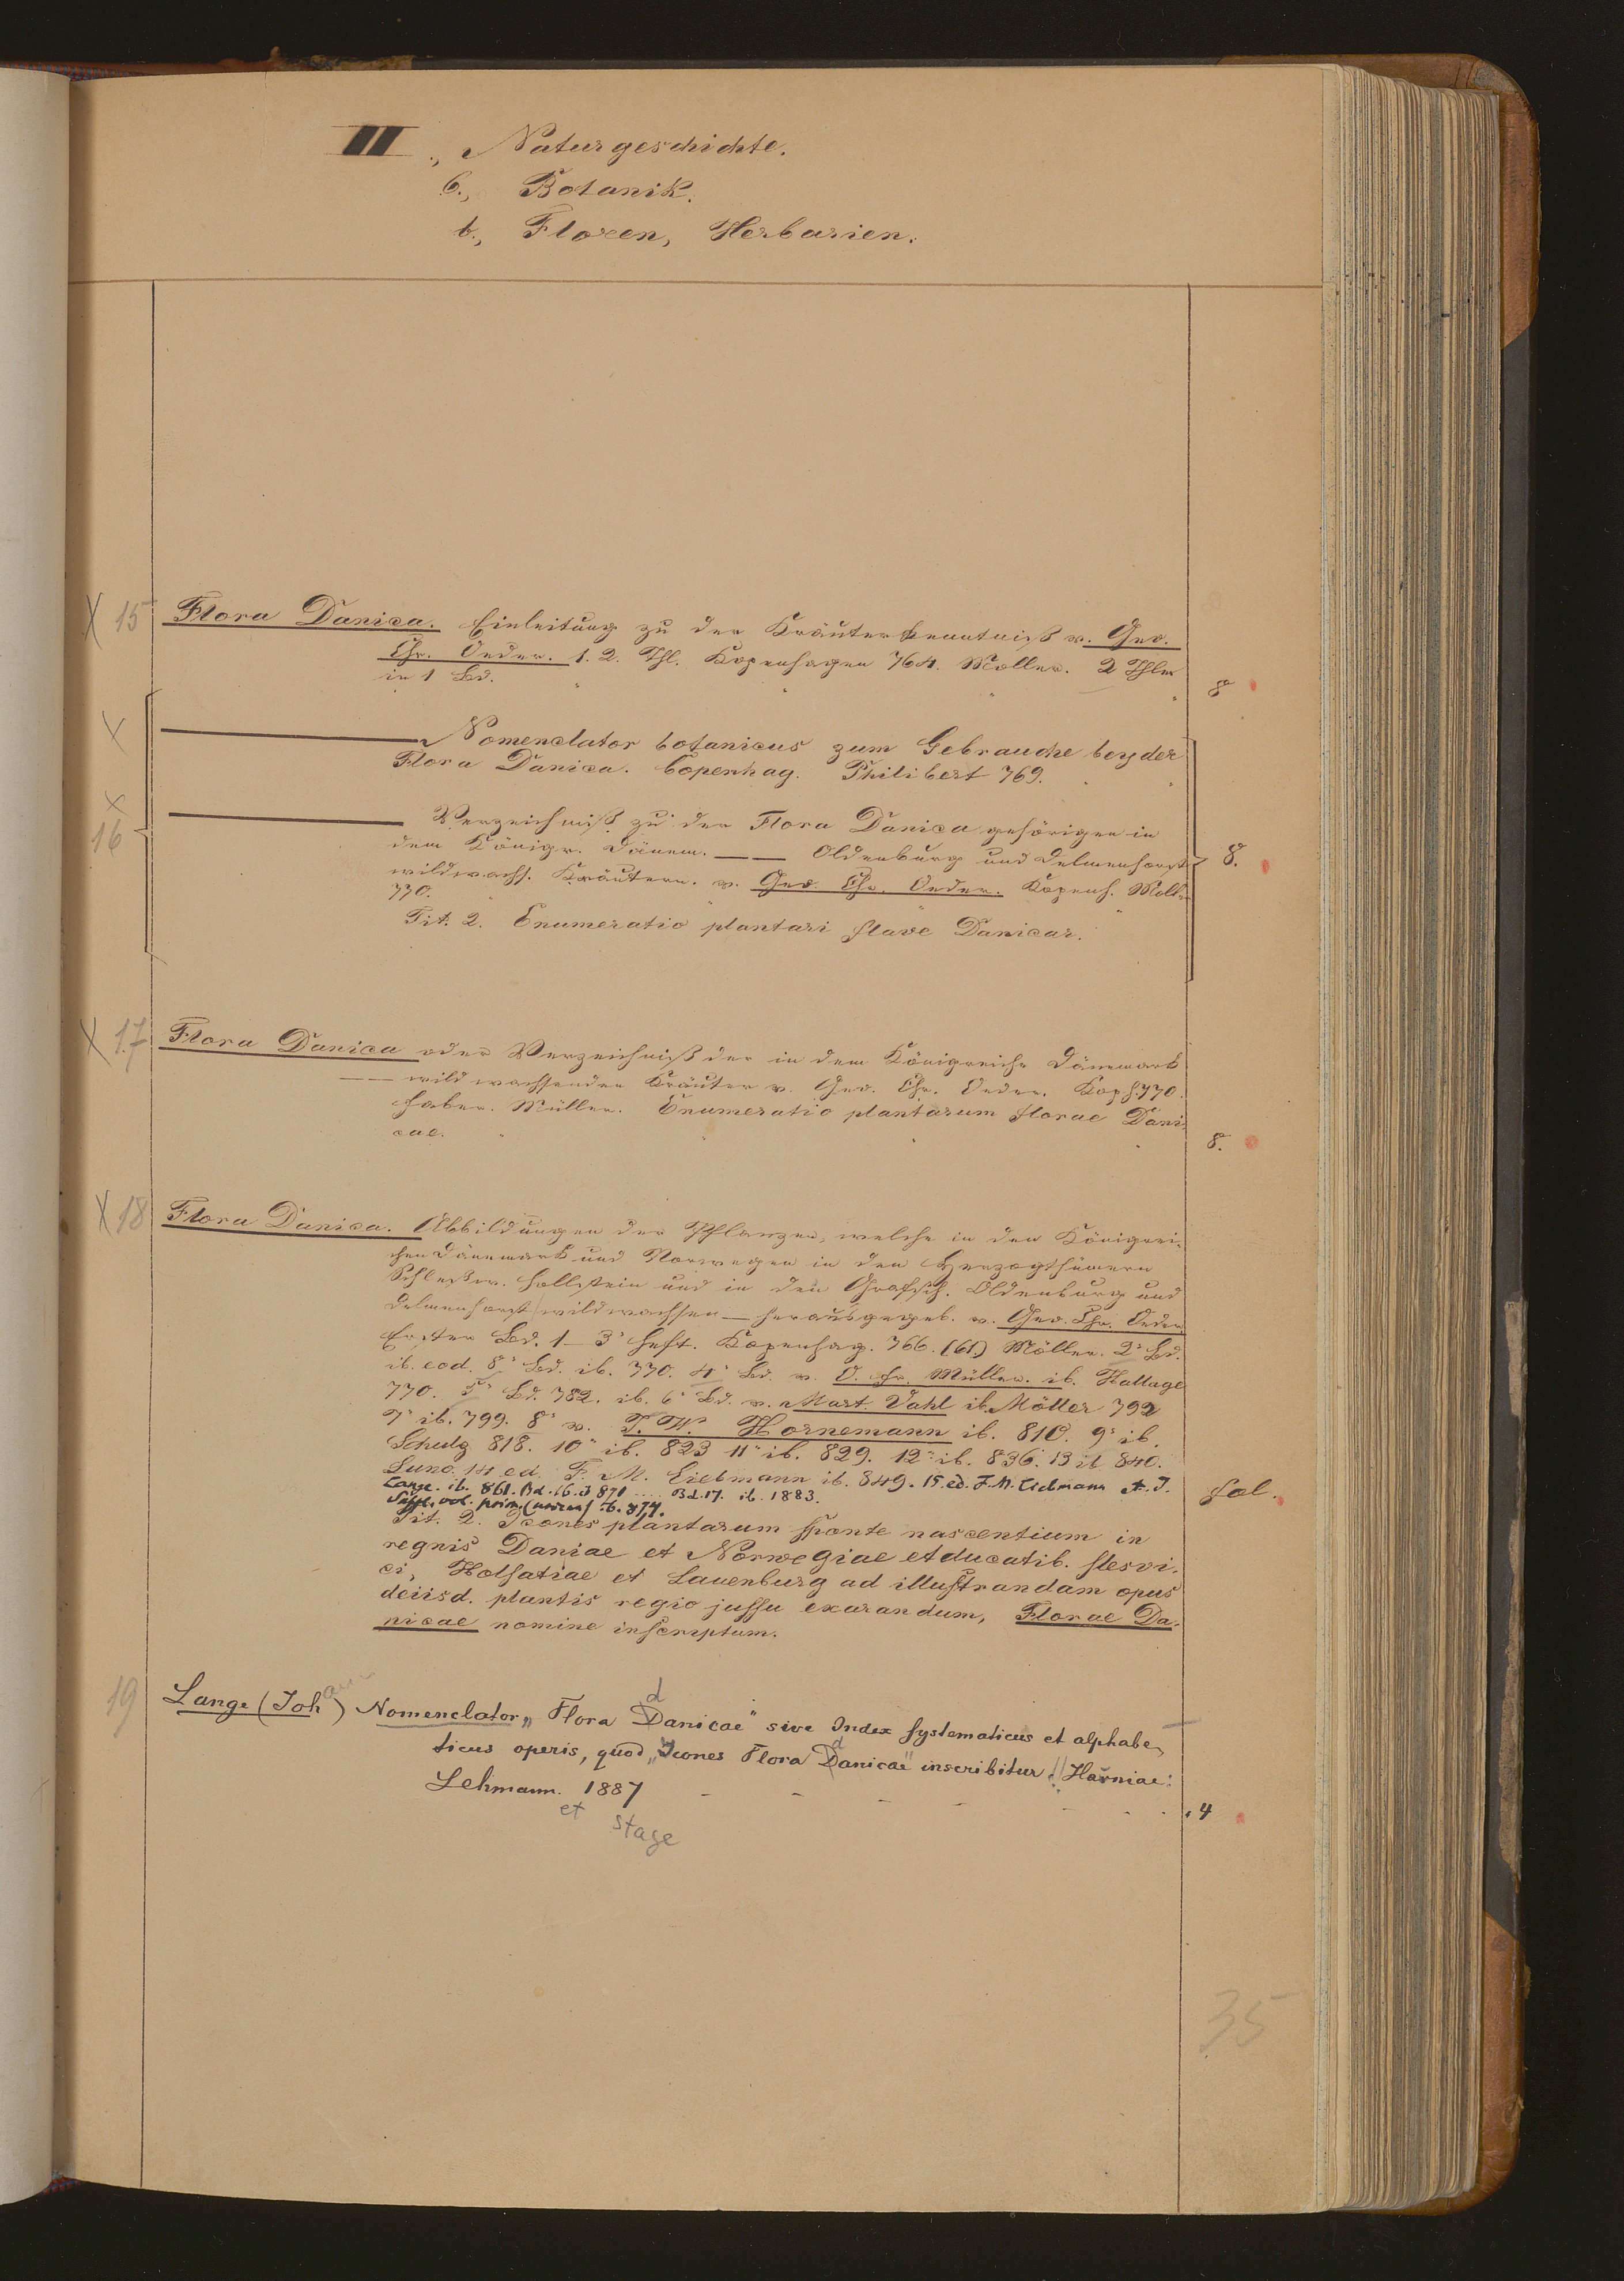 III., Naturgeschichte.
6., Botanik.
b., Floren, Herbarien.
X 15 Flora Danica. Einleitung zu der Kräuterkenntniß v. Geo.
Chr. Oeder. 1. 2. Thl. Kopenhagen 764. Moller. 2 Thle
in 1 Bd. 8°
X Nomenclator botanicus zum Gebrauche bey der
Flora Danica. Copenhag. Philibert 769.
X 16 Verzeichniß zu der Flora Danica gehörigen in
dem Königr. Dänem. — — Oldenburg und Delmenhorst 8.
wildwachs. Kräutern. v. Geo. Chr. Oeder. Kopenh. Moll.
770.
Tit. 2. Enumeratio plantari flave Danicar.
X 17 Flora Danica oder Verzeichniß der in dem Königreiche Dänemark
— — wild wachsenden Kräuter v. Geo. Chr. Oeder. Koph. 770.
Faber. Müller. Enumeratio plantarum florae Dani-
cae. 8.
X 18 Flora Danica. Abbildungen der Pflanzen, welche in den Königrei-
chen Dänemark und Norwegen in den Herzogthümern
Schlesw. Hollstein und in den Grafsch. Oldenburg und
Delmenhorst wildwachsen — herausgegeb. v. Geo. Chr. Oeder
Erster Bd. 1–3' Heft. Kopenhag. 766. (61) Möller. 2' Bd.
ib. eod. 8' Bd. ib. 770. 4' Bd. v. O. Fr. Müller. ib. Hallage
770. 5' Bd. 782. ib. 6' Bd. v. Mart. Vahl ib. Möller 792
7' ib. 799. 8' v. J. W. Hornemann ib. 810. 9' ib.
Schulz 818. 10" ib. 823 11" ib. 829. 12" ib. 836. 13 ib 840.
Luno. 14 ed. F. M. Eiebmann ib. 849. 15. ed. F. M. Liebmann et J. fol.
Lange. ib. 861. Bd. 16. ib 871 .... Bd. 17. ib. 1883.
Suppl. vol. prim. ib. 874.
Tit. 2. Icones plantarum sponte nascentium in
regnis Daniae et Norwegiae et ducatib. slesvi-
ci, Holsatiae et Lauenburg ad illustrandam opus
deiisd. plantis regio jussu exarandum, Florae Da-
nicae nomine inscriptum.
19 Lange (Johann) Nomenclator „Flora Danicae" sive Index systematicus et alphabe-
ticus operis, quod „Icones Flora Danicae" inscribitur. Hafniae:
Lehmann. 1887 4
et stage
35